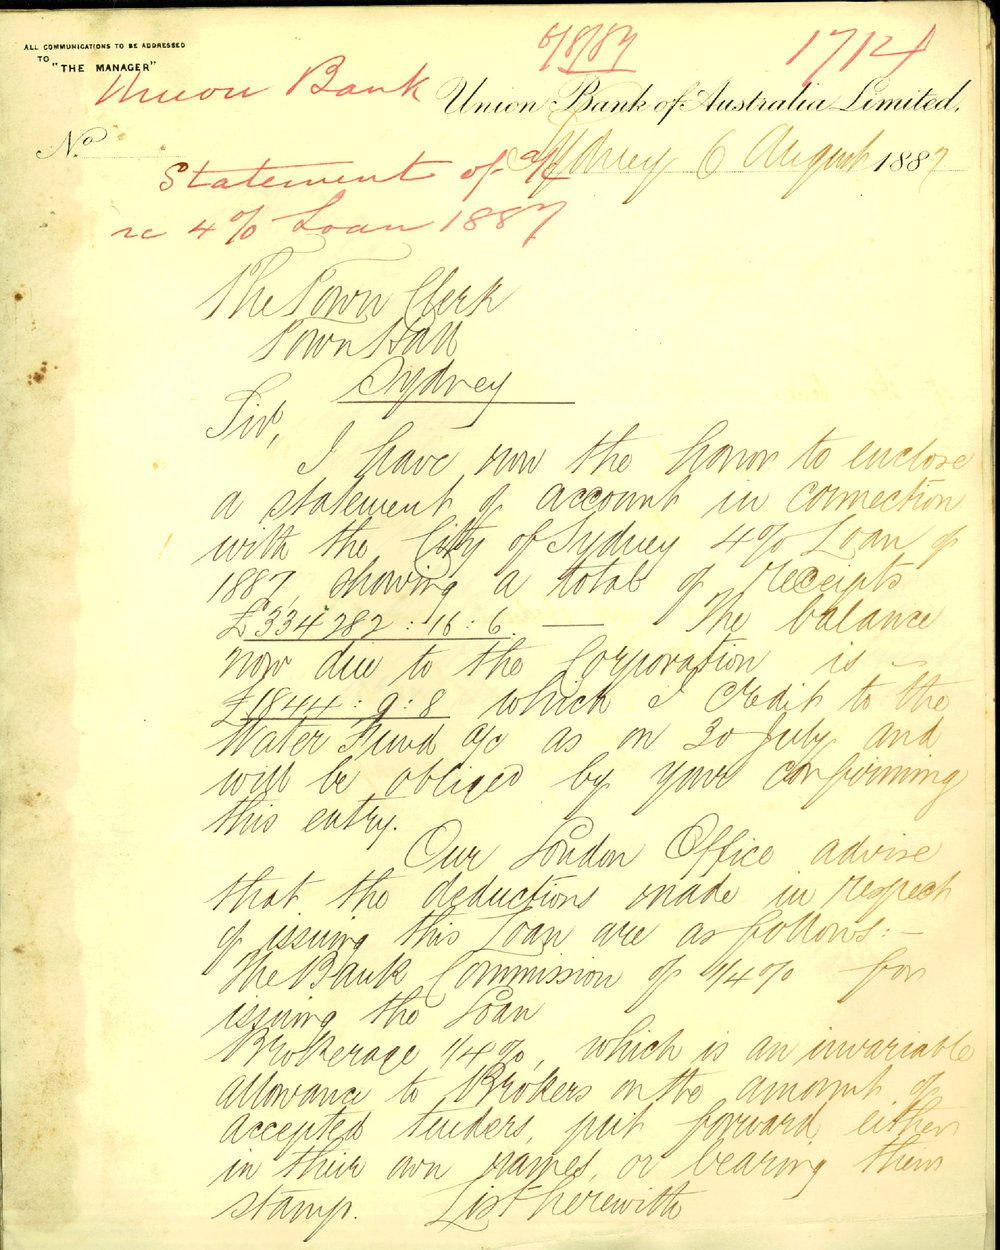 ALL COMMUNICATIONS TO BE ADDRESSED
TO "THE MANAGER"
6/8/87
1714
Union Bank
Union Bank of Australia Limited.
No.
Sydney 6 August 1887
Statement of a/c
re 4% Loan 1887
The Town Clerk
Town Hall
Sydney
Sir,
I have now the honor to enclose
a statement of account in connection
with the City of Sydney 4% Loan of
1887, showing a total of receipts
£334282:16:6. — The balance
now due to the Corporation is —
£1844:9:8 which I credit to the
Water Fund a/c as on 30 July and
will be obliged by your confirming
this entry.
Our London Office advise
that the deductions made in respect
of issuing this Loan are as follows:—
The Bank Commission of 1/4% for
issuing the Loan
Brokerage 1/4%, which is an invariable
allowance to Brokers on the amount of
accepted tenders, put forward either
in their own names, or bearing their
stamp. List herewith